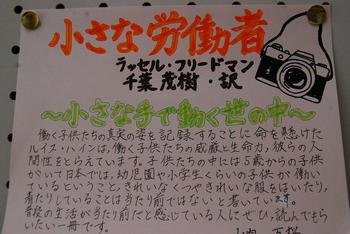 小さな労働者
ラッセル・フリードマン
千葉茂樹・訳
～小さな手で働く世の中～
働く子供たちの真実の姿を記録することに命を懸けた
ルイス・ハインは、働く子供たちの威厳と生命力、彼らの人
間性をとらえています。子供たちの中には5歳からの子供
がいて日本では、幼児園や小学生くらいの子供が働い
ているということ。きれいなくつやきれいな服をはいたり、
着たりしていることは当たり前ではないと書いています。
普段の生活が当たり前だと感じている人にぜひ、読んでもら
いたい一冊です。